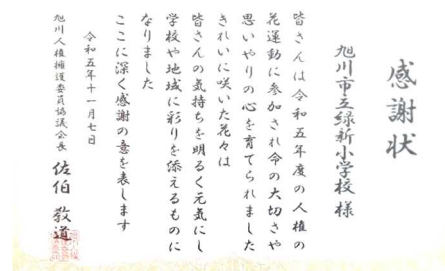 感謝状
旭川市立緑新小学校 様
皆さんは令和五年度の人権の
花運動に参加され命の大切さや
思いやりの心を育てられました
きれいに咲いた花々は
皆さんの気持ちを明るく元気にし
学校や地域に彩りを添えるものに
なりました
ここに深く感謝の意を表します
令和五年十一月七日
旭川人権擁護委員協議会長 佐伯 敎道